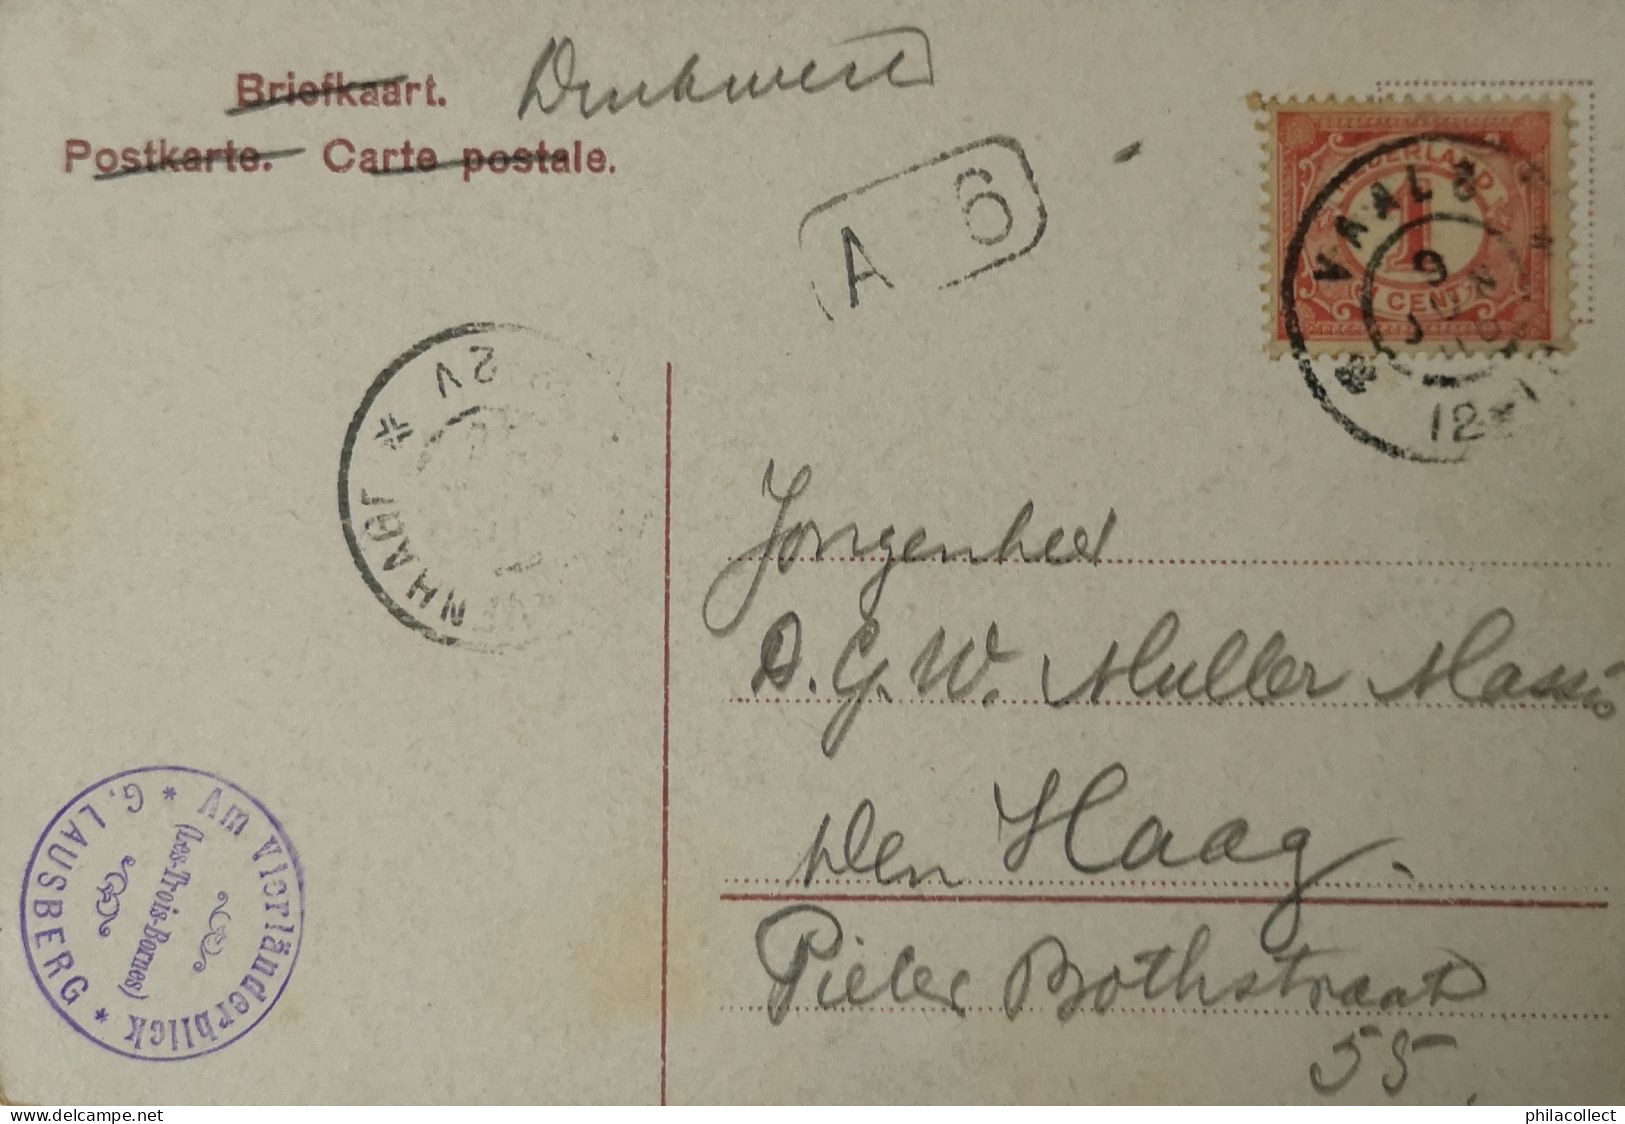 Briefkaart. Drukwerk
Postkarte. Carte postale.
A 6
NEDERLAND
1
CENT
VAALS
9
JUN
12
2V
NHAGE
Jongenheer
D. G. W. Muller Massis
Den Haag.
Pieter Bothstraat
55.
* Am Vierländerblick *
(Les-Trois-Bornes)
G. LAUSBERG
philacollect